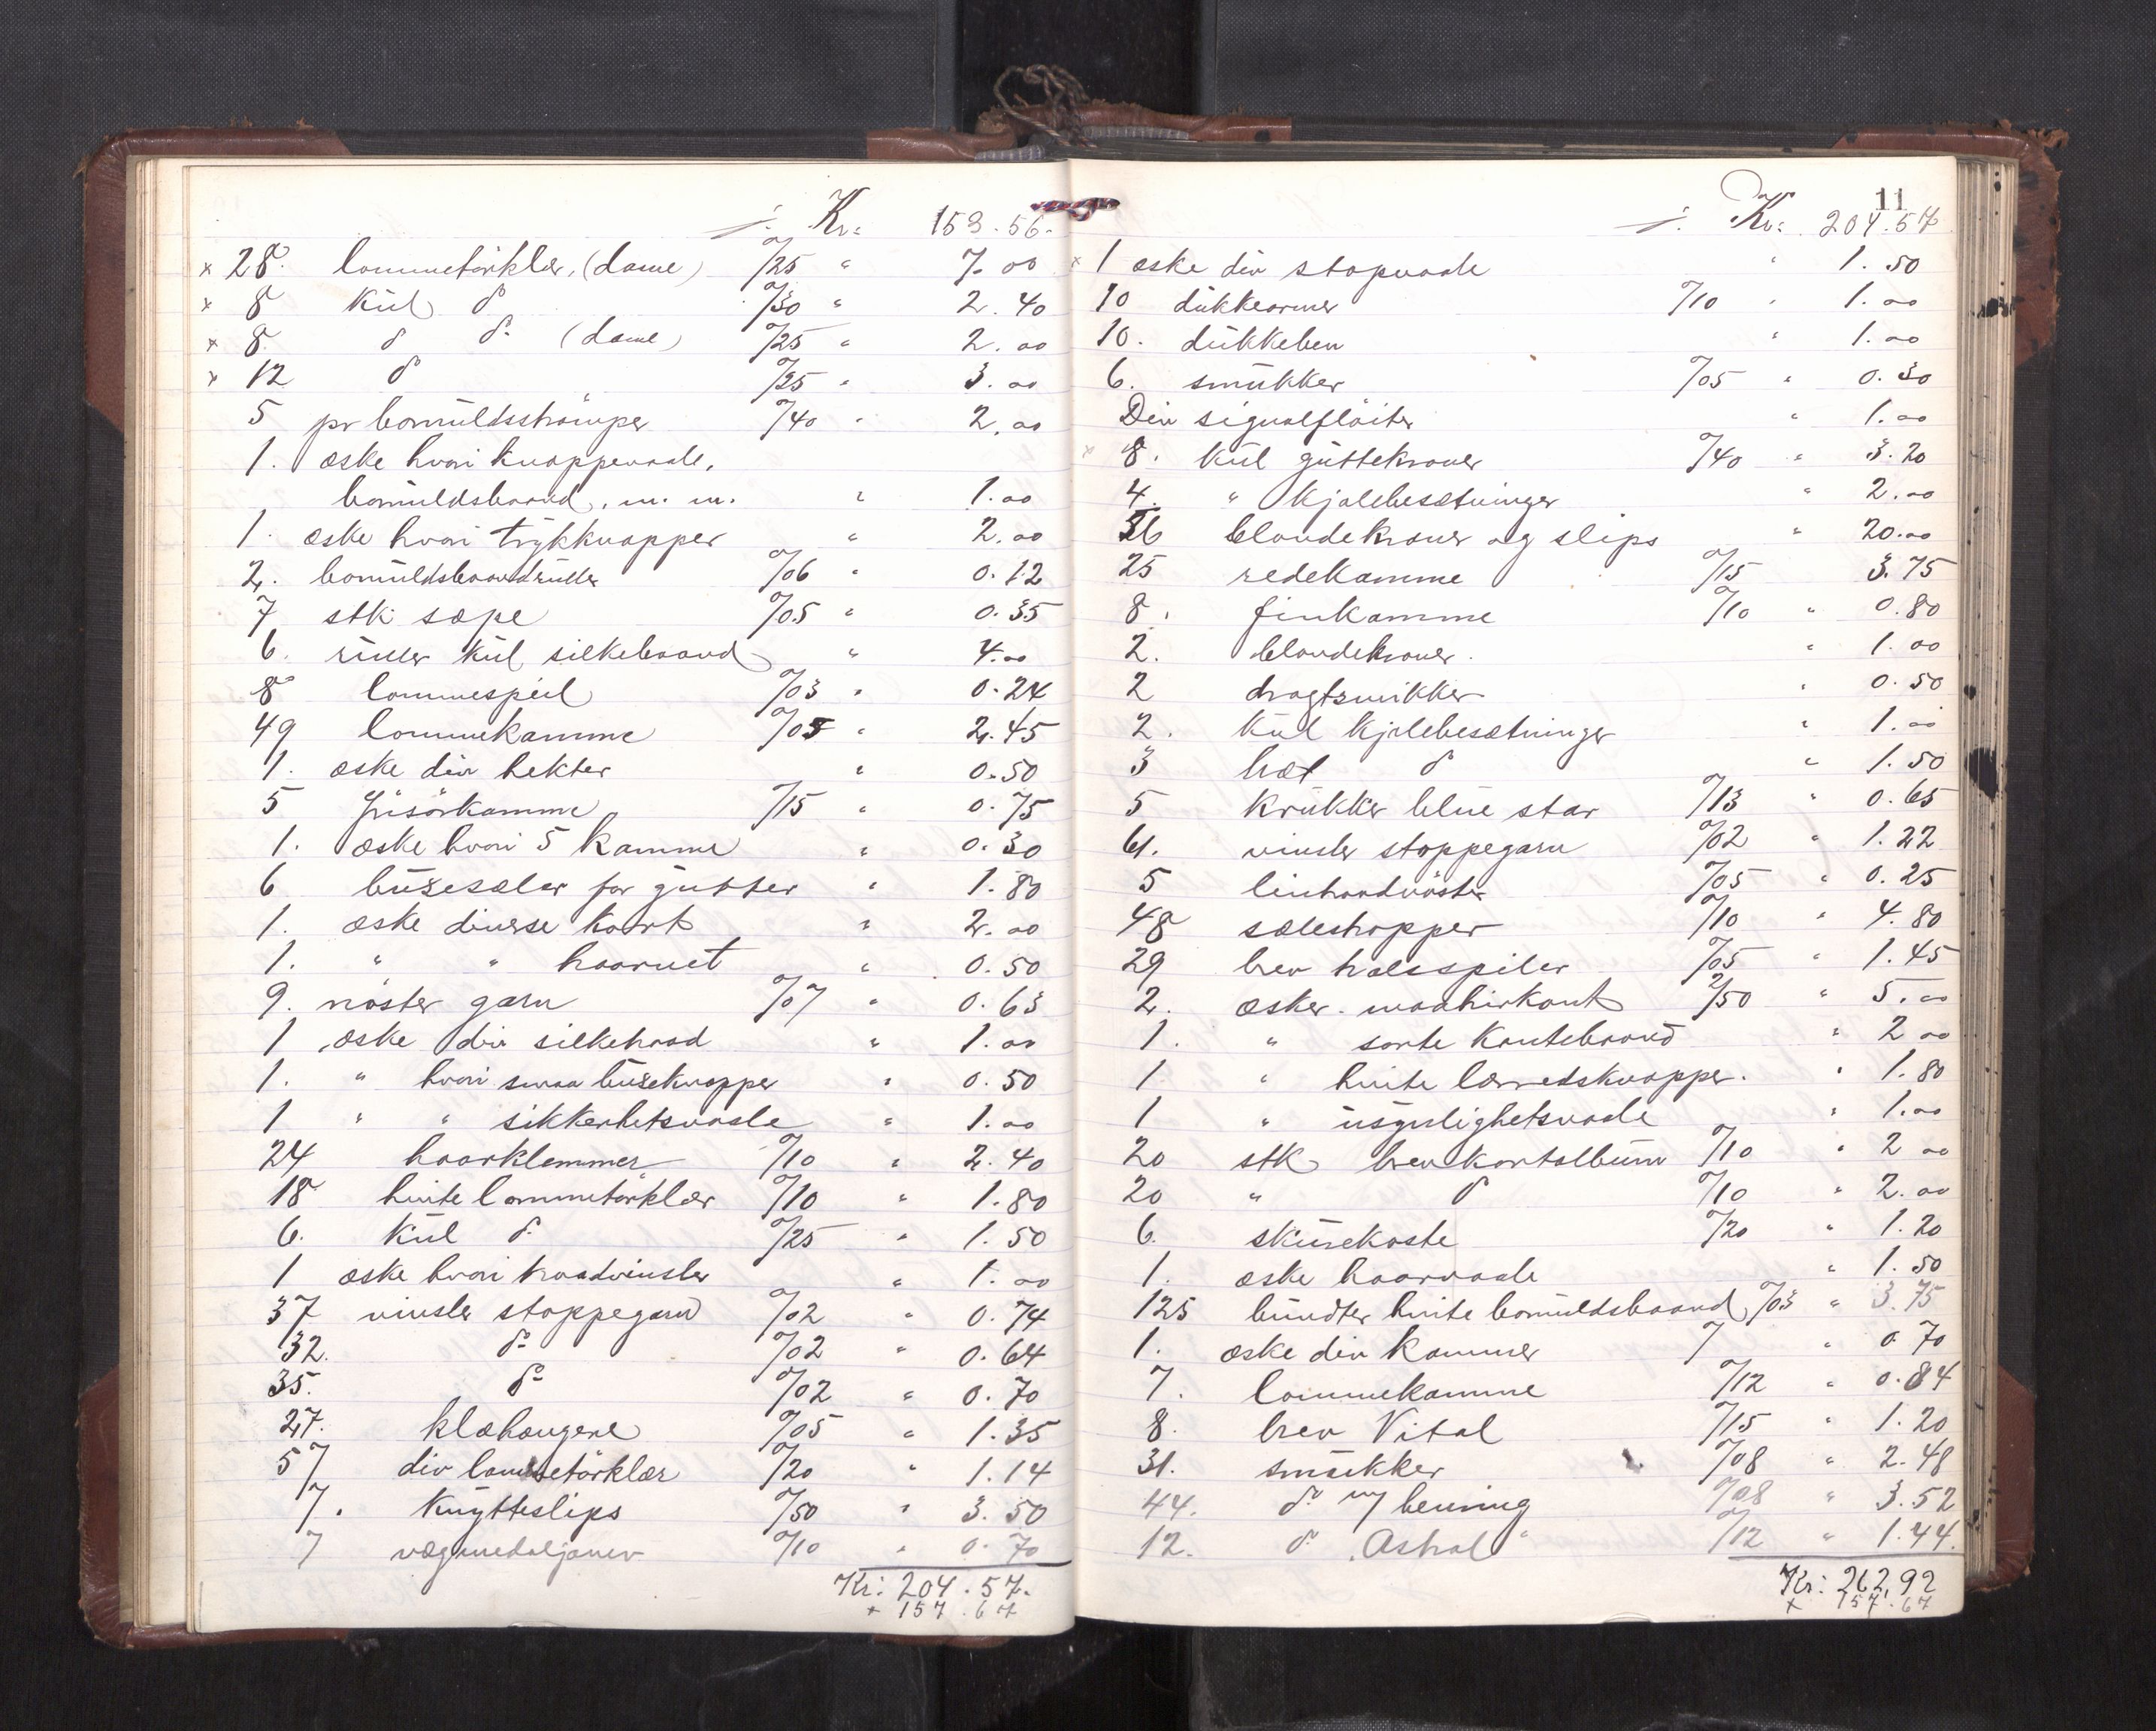 ∴ Kr: 153.56.
× 28. lommetörklær, (dame) %25 " 7.00
× 8 kul. do %30 " 2.40
× 8 do do (dame) %25 " 2.00
× 12 do %25 " 3.00
5 pr bomuldsströmper %40 " 2.00
1. æske hvori knappenaale,
bomuldsbaand, m. m. " 1.00
1. æske hvori trykknapper " 2.00
2. bomuldsbaandruller %06 " 0.12
7 stk sæpe %05 " 0.35
6. ruller kul silkebaand " 4.00
8 lommespeil %03 " 0.24
49 lommekamme %05 " 2.45
1. æske div hekter " 0.50
5 frisörkamme %15 " 0.75
1. æske hvori 5 kamme " 0.30
6 buxesæler for gutter " 1.80
1. æske diverse kort " 2.00
1. " " haarnet " 0.50
9. nöster garn %07 " 0.63
1 æske div silketraad " 1.00
1. " hvori smaa buxeknapper " 0.50
1 " " sikkerhetsnaale " 1.00
24 haarklemmer %10 " 2.40
18 hvite lommetörklær %10 " 1.80
6. kul do %25 " 1.50
1 æske hvori traadvinsler " 1.00
37 vinsler stoppegarn %02 " 0.74
32. do %02 " 0.64
35. do %02 " 0.70
27. klæhængere %05 " 1.35
57 div lommetörklær %20 " 1.14
7. knytteslips %50 " 3.50
7 vægmedaljoner %10 " 0.70
Kr: 204.57.
× 157.67
11
∴ Kr: 204.57
× 1 æske div stopnaale " 1.50
10 dukkearmer %10 " 1.00
10. dukkeben " 1.00
6. smukker %05 " 0.30
Div signalflöiter " 1.00
× 8. kul guttekraver %40 " 3.20
4. " kjolebesætninger " 2.00
36 blondekraver og slips " 20.00
25 redekamme %15 3.75
8. finkamme %10 " 0.80
2. blondekraver. " 1.00
2 dragtsnikker " 0.50
2. kul kjolebesætninger " 1.00
3 hæl do " 1.50
5 krukker blue star %13 " 0.65
61. vinsler stoppegarn %02 " 1.22
5 lintraadnöster %05 " 0.25
48 sælestropper %10 " 4.80
29 brev halsspiler %05 " 1.45
2. æsker mohairkant 2/50 " 5.00
1. " sorte kantebaand " 2 00
1 " hvite lærredsknapper. " 1.80
1 " usynlighetsnaale " 1.00
20 stk brevkortalbum %10 " 2 00
20 " do %10 " 2.00
6. skurekoste %20 " 1.20
1. æske haarnaale " 1.50
125 bundter hvite bomuldsbaand %03 " 3.75
1. æske div kammer " 0 70
7. lommekamme %12 " 0.84
8. brev Vital %15 " 1.20
31. smukker %08 " 2.48
44. do m/ benring %08 " 3.52
12. do "Astral" %12 " 1.44.
Kr: 262,92
× 157.67